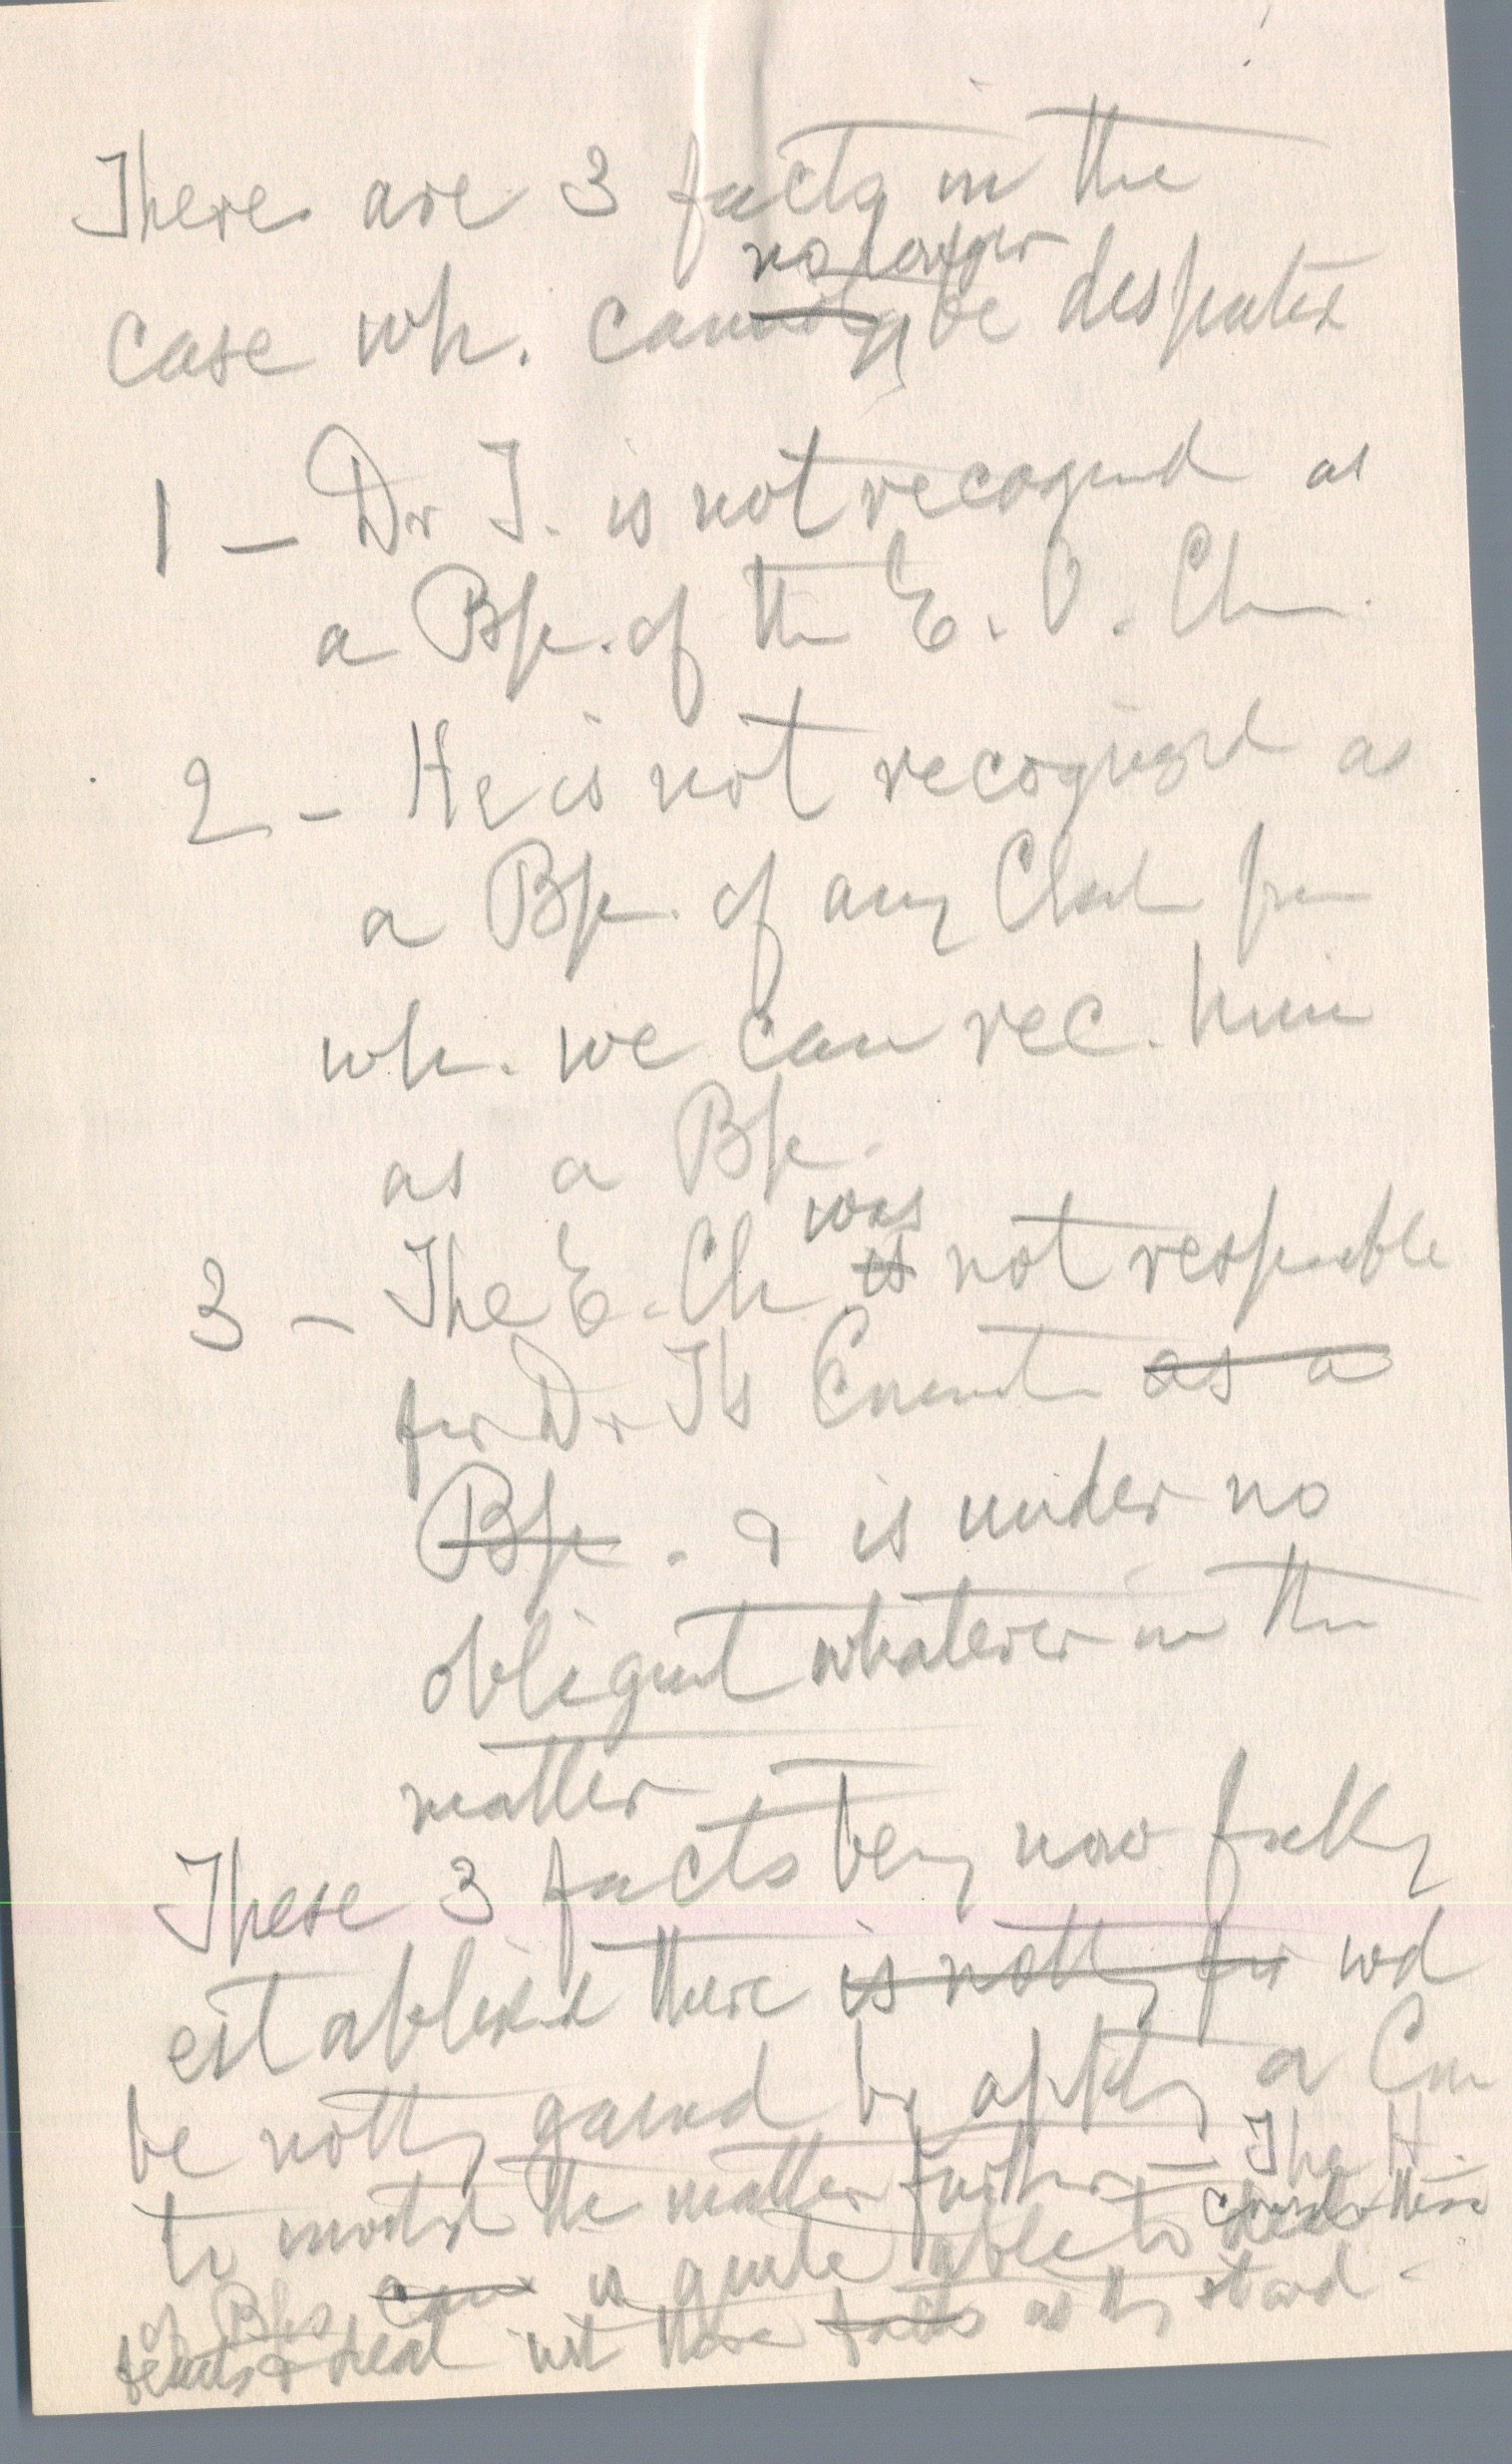 There are 3 facts in the
no longer
case wh. cannot be disputed
1 - Dr T. is not recognd as
a Bp. of the E. O. Ch.
2 - He is not recognized as
a Bp. of any Chch from
wh. we can rec. him
as a Bp.
was
3 - The E. Ch is not responsible
for Dr T's as a
Bp. & is under no
obligat whatever in the
matter
These 3 facts being now fully
established there is nothg for wd
be nothg gained by apptg a Com
to investg the matter further - The H.
consider these
of Bps can is quite able to
facts & deal wit these facts as they stand -